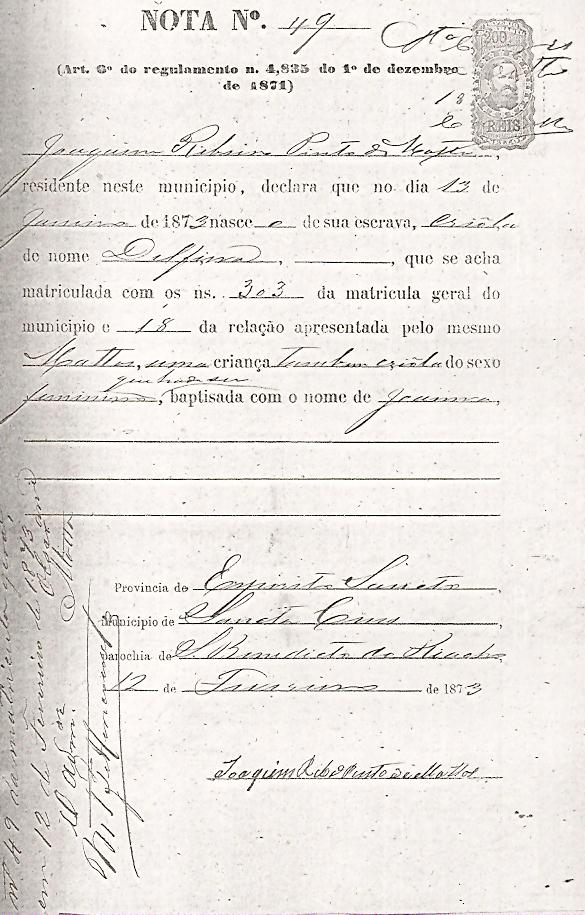 NOTA Nº. 49
200
REIS
(Art. 6º do regulamento n. 4,835 do 1º de dezembro
de 1871)
Joaquim Ribeiro Pinto de Mattos,
residente neste municipio, declara que no dia 13 de
Janeiro de 1873 nasceo de sua escrava, criôla
de nome Delfina, que se acha
matriculada com os ns. 303 da matricula geral do
municipio e 18 da relação apresentada pelo mesmo
Mattos, uma criança tambem criôla do sexo
que ha de ser
feminino, baptisada com o nome de Joanna,
Provincia do Espirito Sancto,
Municipio de Sancta Cruz,
parochia de S. Benedicto do Riacho,
12 de Fevereiro de 1873
Joaquim Rib.º Pinto de Mattos
nº 49
em 12 de Fevereiro de 1873